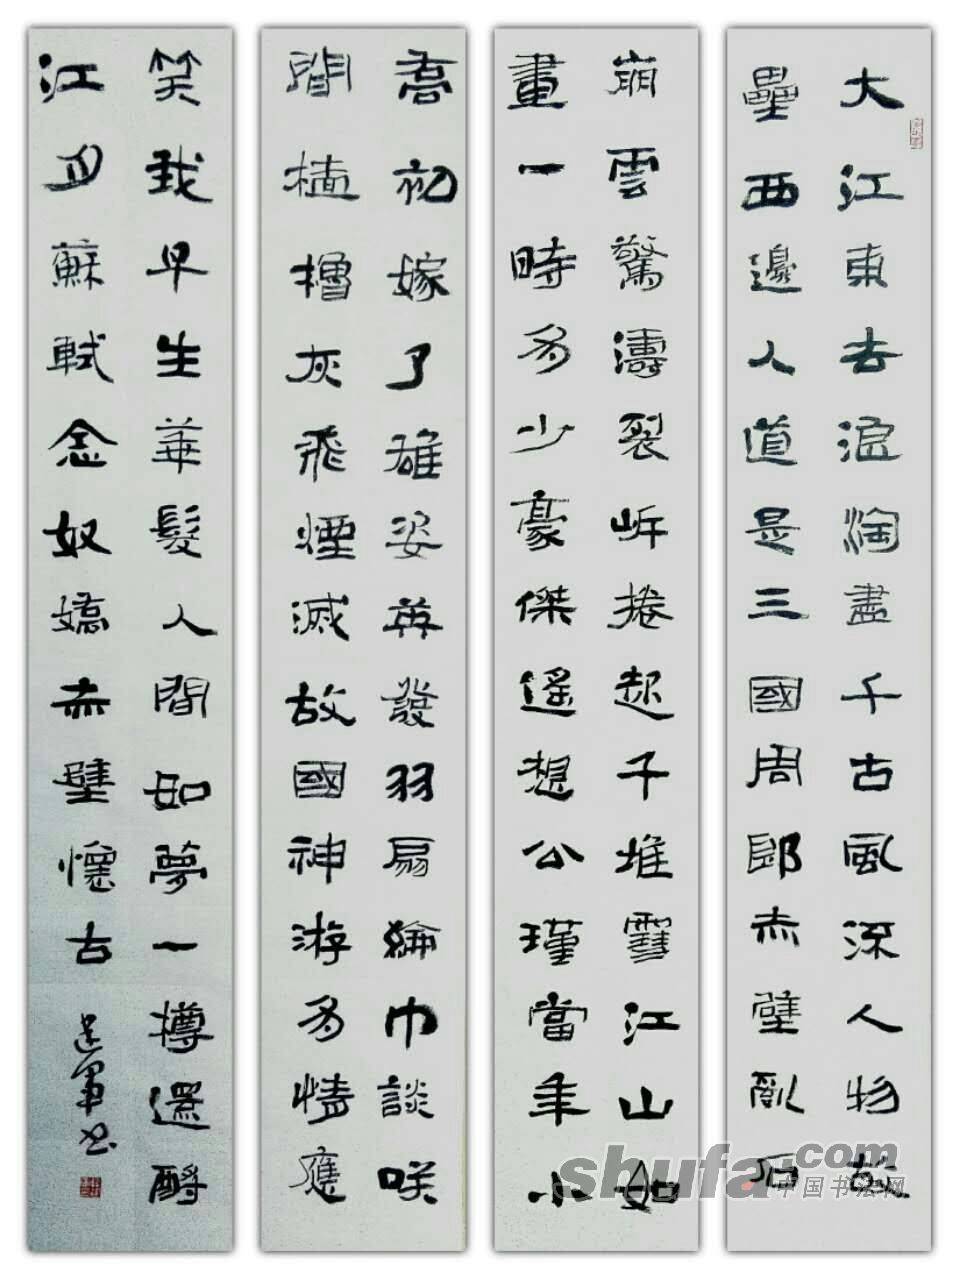 大江東去浪淘盡千古風流人物故
壘西邊人道是三國周郎赤壁亂石
崩雲驚濤裂岸捲起千堆雪江山如
畫一時多少豪傑遙想公瑾當年小
喬初嫁了雄姿英發羽扇綸巾談咲
間檣櫓灰飛煙滅故國神游多情應
笑我早生華髮人間如夢一樽還酹
江月蘇軾念奴嬌赤壁懷古
书
shufa.com
中国书法网